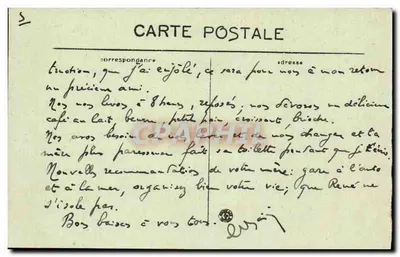 5
CARTE POSTALE
Correspondance
Adresse
truction, que j'ai enjôlé, ce sera pour nous à mon retour
un précieux ami.
Nous nous levons à 8 heures, reposés; nous dévorons un délicieux
café au lait, beurre, petit pain, croissant, brioche.
Nous avons besoin de nous et de nous changer et ta
mère plus paresseuse fait sa toilette pendant que je t'écris.
Nouvelles recommandations de votre mère: gare à l'auto
et à la mer, organisez bien votre vie; que René ne
s'isole pas.
Bons baisers à vous tous.